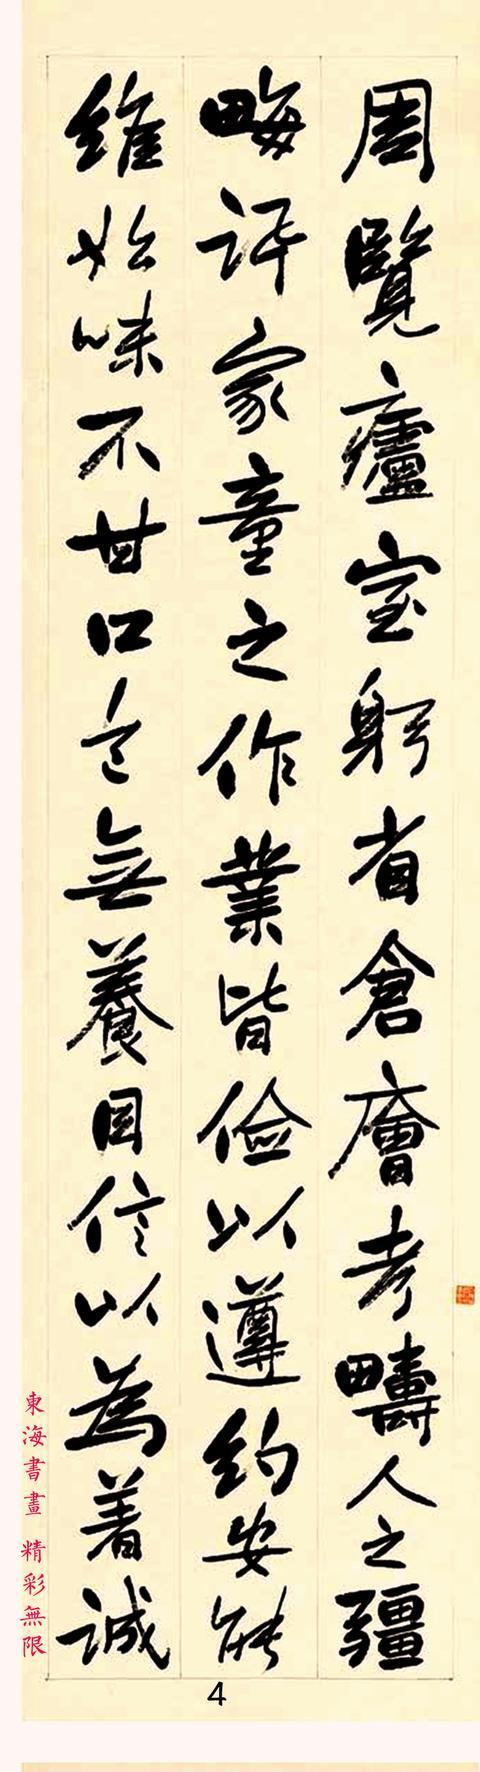 周覽廬室躬省倉廥考疇人之疆
畮評家童之作業皆儉以遵約安能
維始味不甘口色無養目信以為着誠
東海書畫 精彩無限
4